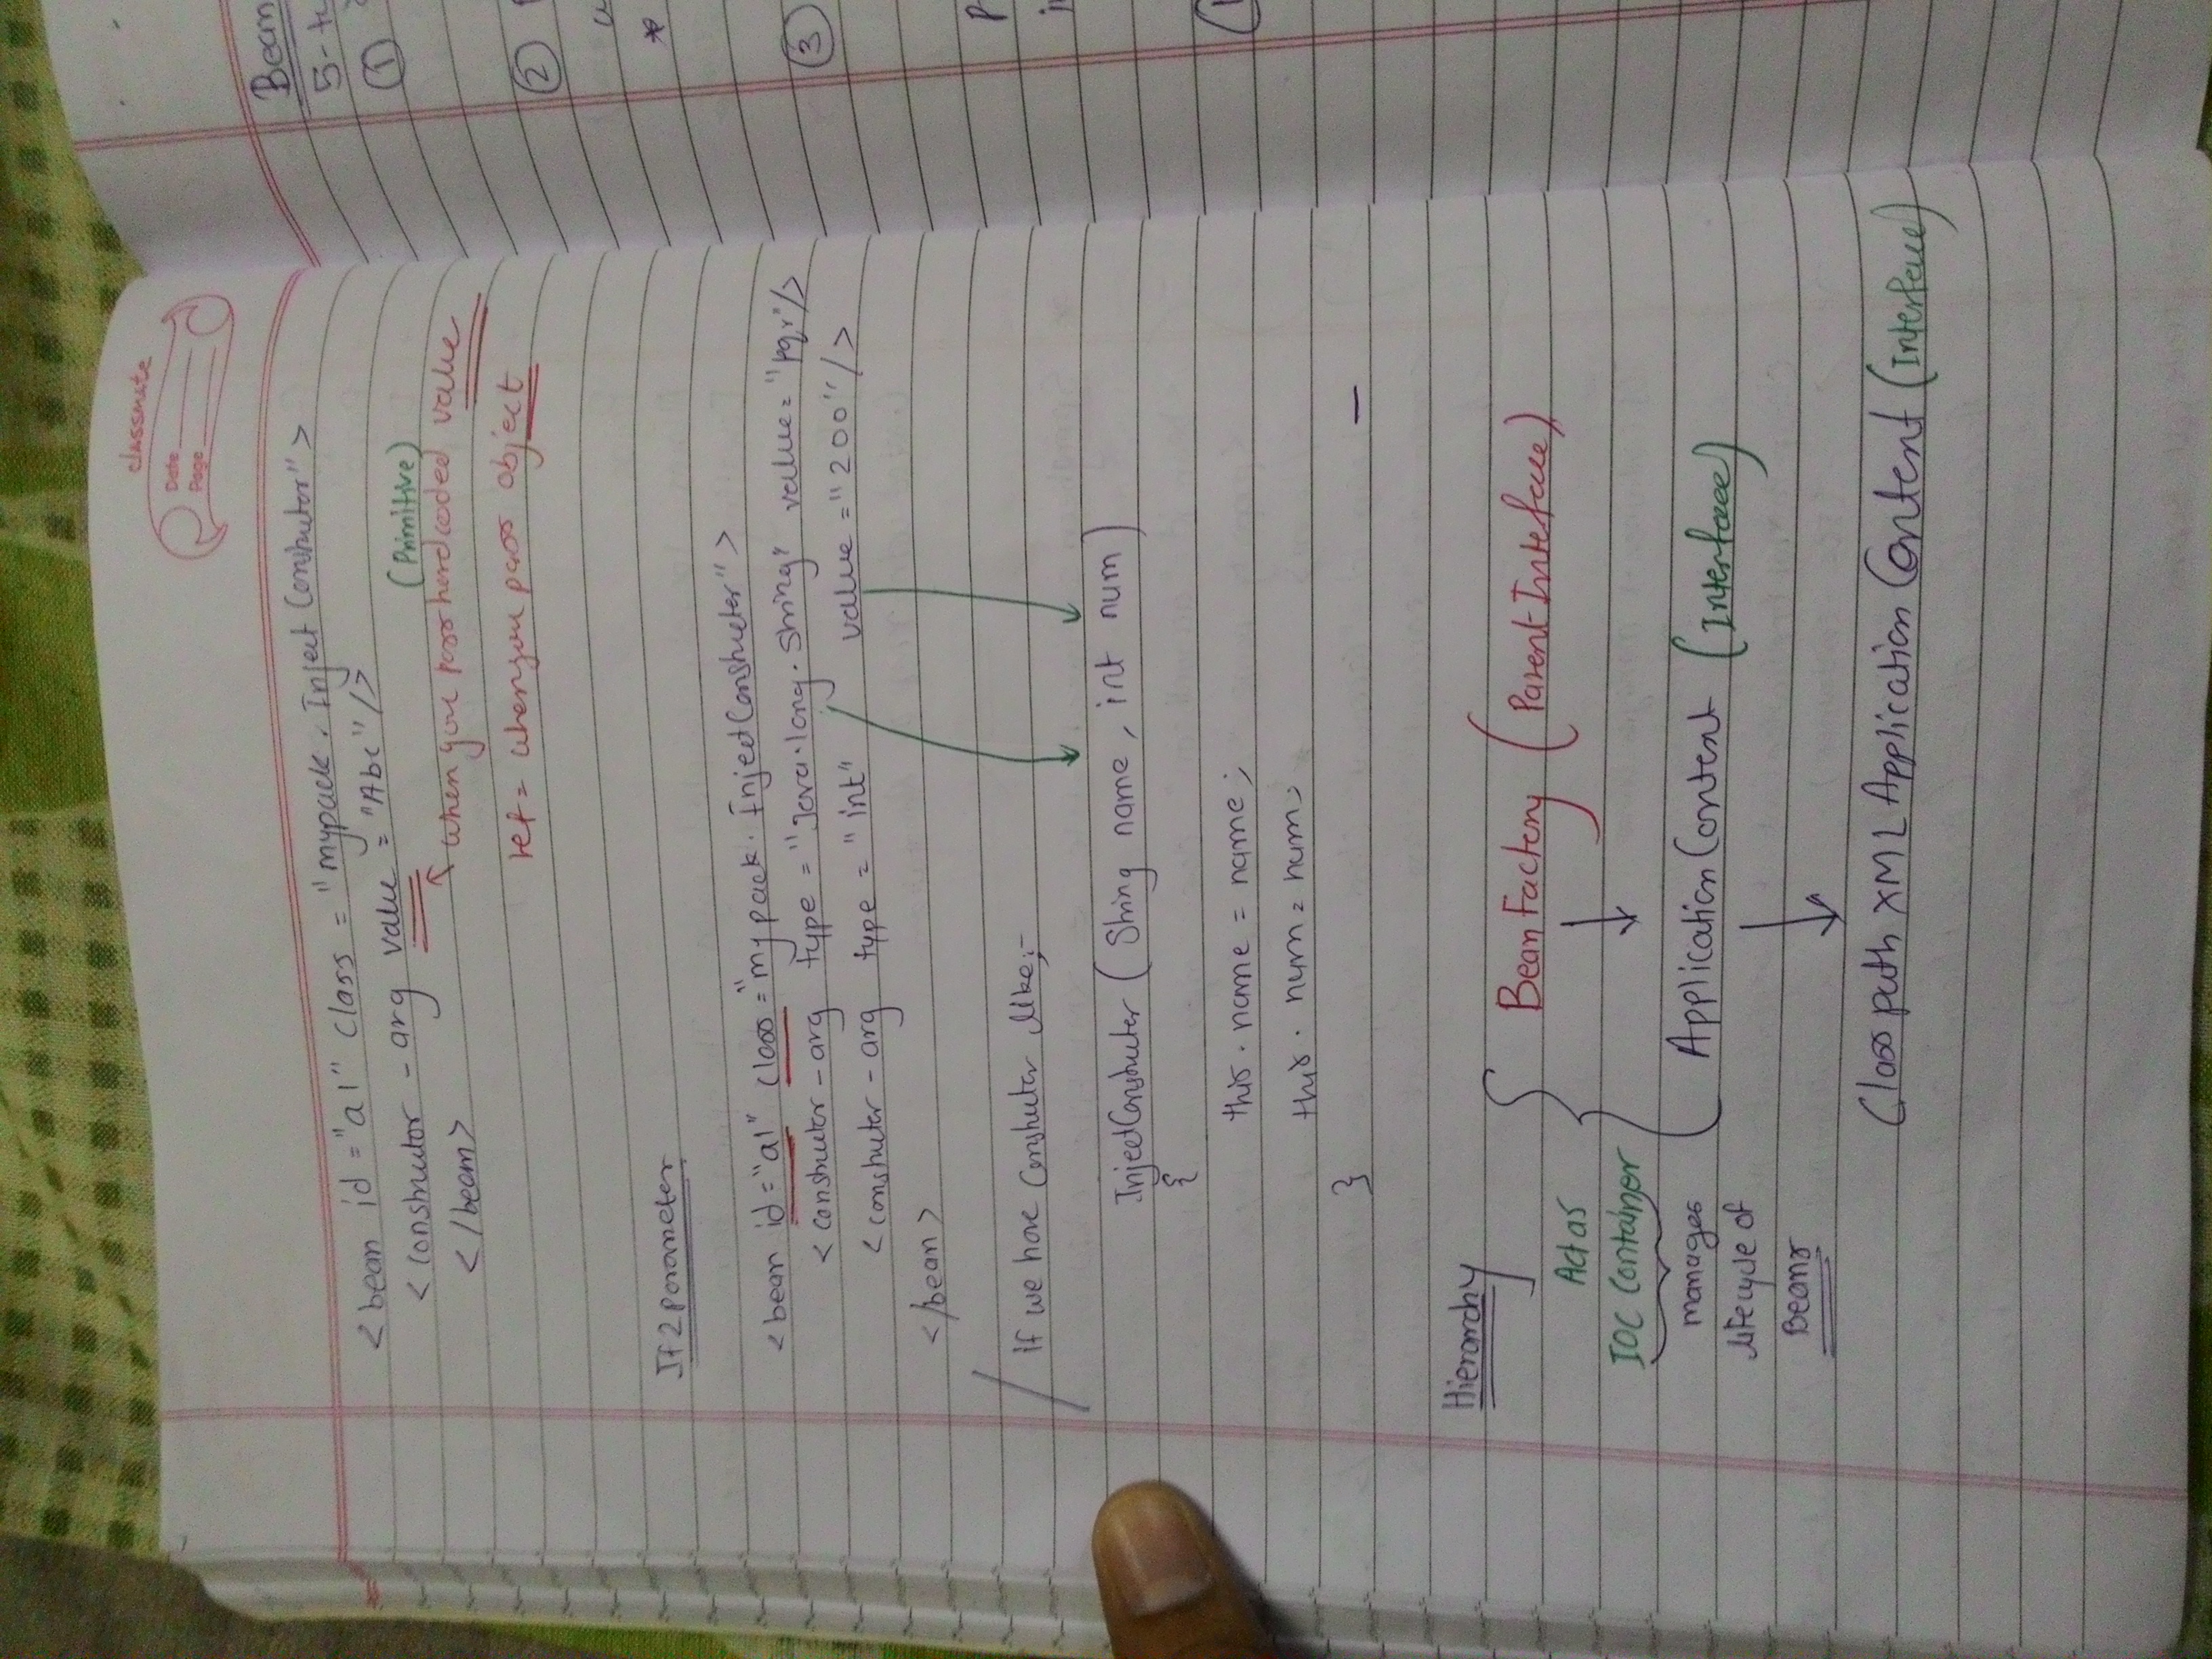 classmate
Date
Page
<bean id="a1" class="mypack.InjectConstructor">
<constructor-arg value="Abc"/>
(Primitive)
</bean>
when you pass hardcoded value
ref = when you pass object
If 2 parameter
<bean id="a1" class="mypack.InjectConstructor">
<constructor-arg type="java.lang.String" value="pqr"/>
<constructor-arg type="int" value="200"/>
</bean>
if we have Constructor like;-
InjectConstructor (String name, int num)
{
this.name = name;
this.num = num;
}
Hierarchy
BeanFactory (Parent Interface)
Act as
IOC Container
manages
lifecycle of
Beans
Application Content (Interface)
Class path XML Application Content (Interface)
Bean
5-
①
②
*
③